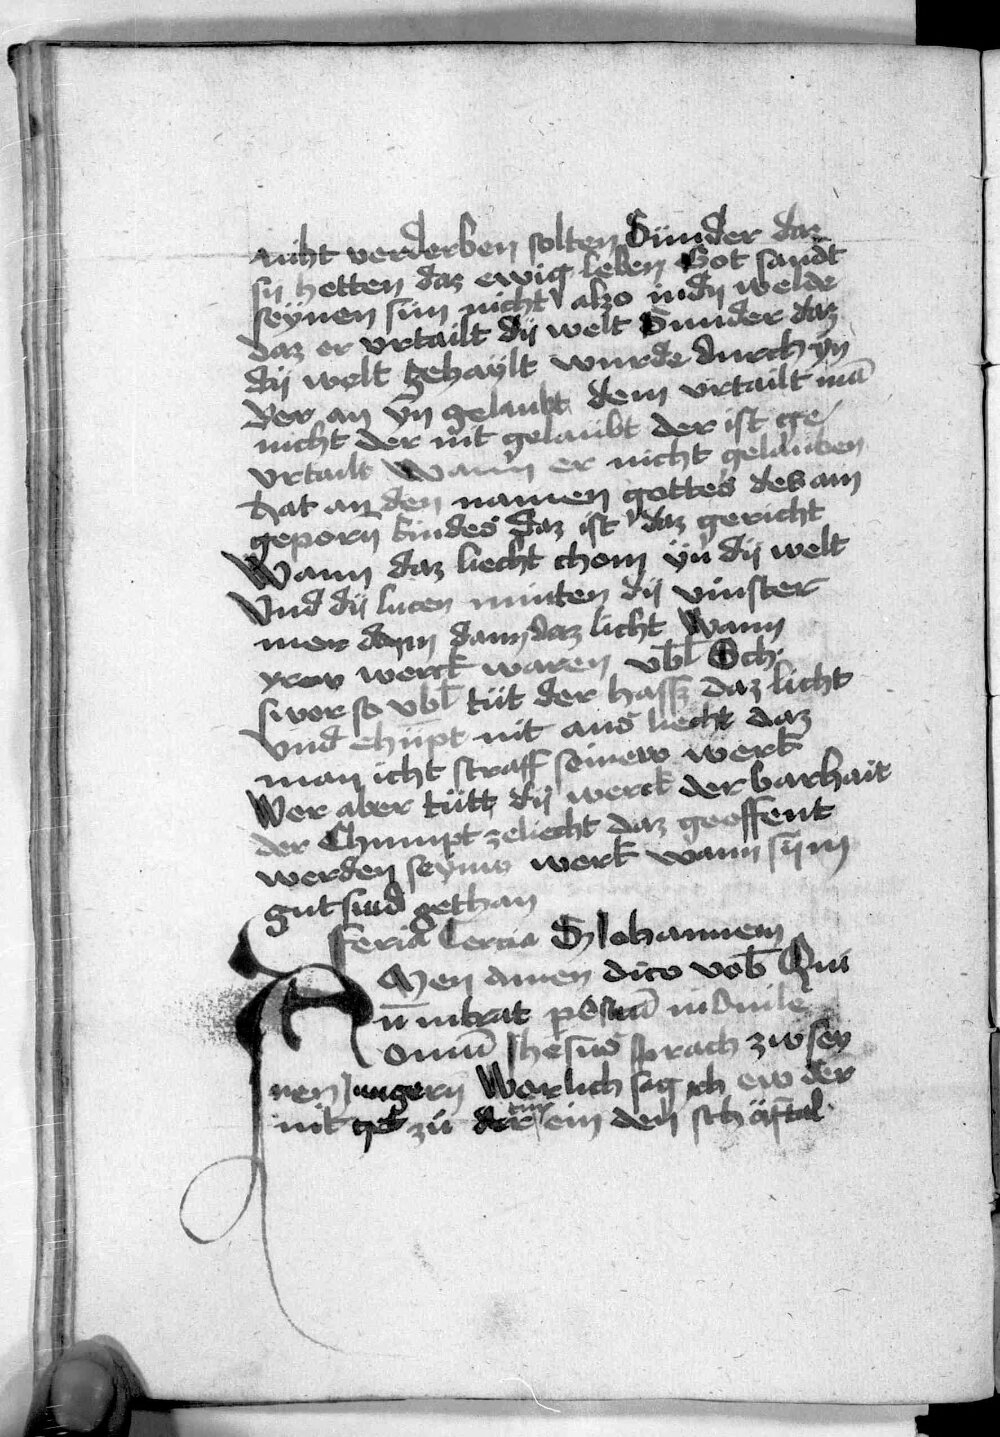 nicht verderben solten Sunder daz
sy hetten daz ewig leben Got sandt
seynen sun nicht also in dy welde
daz er vrtailt dy welt Sunder daz
dy welt gehaylt wurde durch yn
Wer an yn gelaubt dem vrtailt mā
nicht der nit gelaubt der ist ge
vrtailt Wann er nicht gelauben
hat an den namen gottes des ain
geporn kindes Daz ist daz gericht
Wann daz liecht chom yn dy welt
Vnd dy luten minten dy vinster
mer dann daz licht Wann
yrew werck waren vbl̄
swer so vbl̄ tut der hassz daz licht
Vnd chūpt nit ans liecht daz
man icht straff seinew werk
Wer aber tutt dy werck der barhait
der Chumpt ze liecht daz geoffent
werden seynew werk wann sy in
gut sind gethan
Feria Tercia S Johannem
Amen amen dico vob̄ Qui
n̄ intrat p ostiū in ouile
ouiū Jhesus sprach zw sey
nen Jungern Werlich sag ich ew der
nit get zu der tur ein den schafstal